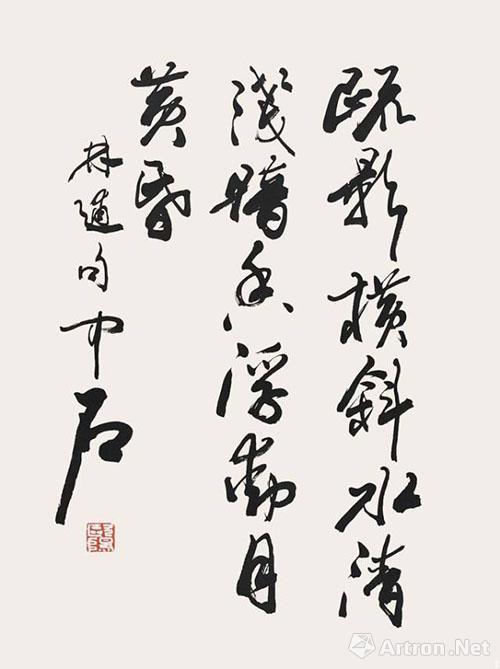 疏影横斜水清
浅暗香浮动月
黄昏
林逋句中石
Artron.Net